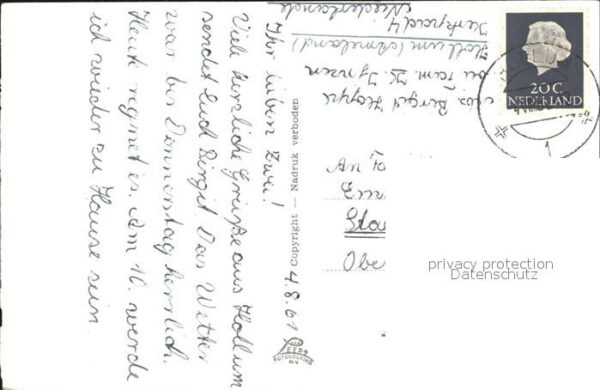 4.8.61
Ihr lieben Zwei!
Viele herzliche Grüße aus Hollum
sendet Euch Birgit. Das Wetter
war bis Donnerstag herrlich.
Heute regnet es. Am 16. werde
ich wieder zu Hause sein.
Copyright — Nadruk verboden
Birgit
bei Fam.
Hollum (Ameland)
4
Niederlande
20 C
NEDERLAND
An
Sta
Obe
privacy protection
Datenschutz